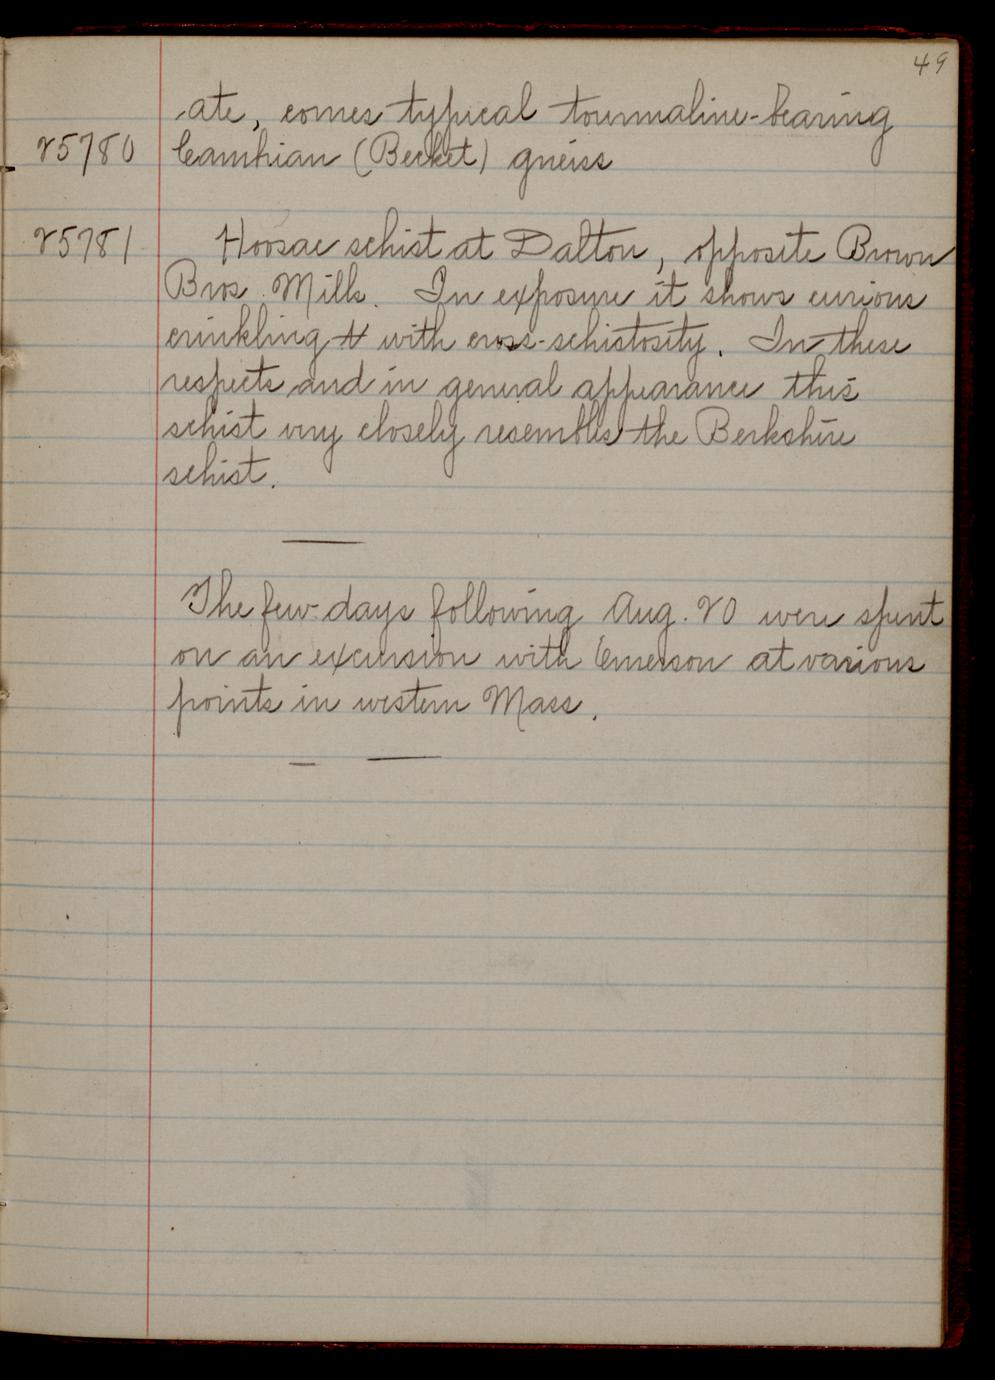 49
-ate, comes typical tourmaline-bearing
25780 Cambrian (Becket) gneiss
25781 Hoosac schist at Dalton, opposite Brown
Bros. Mills. In exposure it shows curious
crinkling with cross-schistosity. In these
respects and in general appearance this
schist very closely resembles the Berkshire
schist.
The few days following Aug. 20 were spent
on an excursion with Emerson at various
points in western Mass.